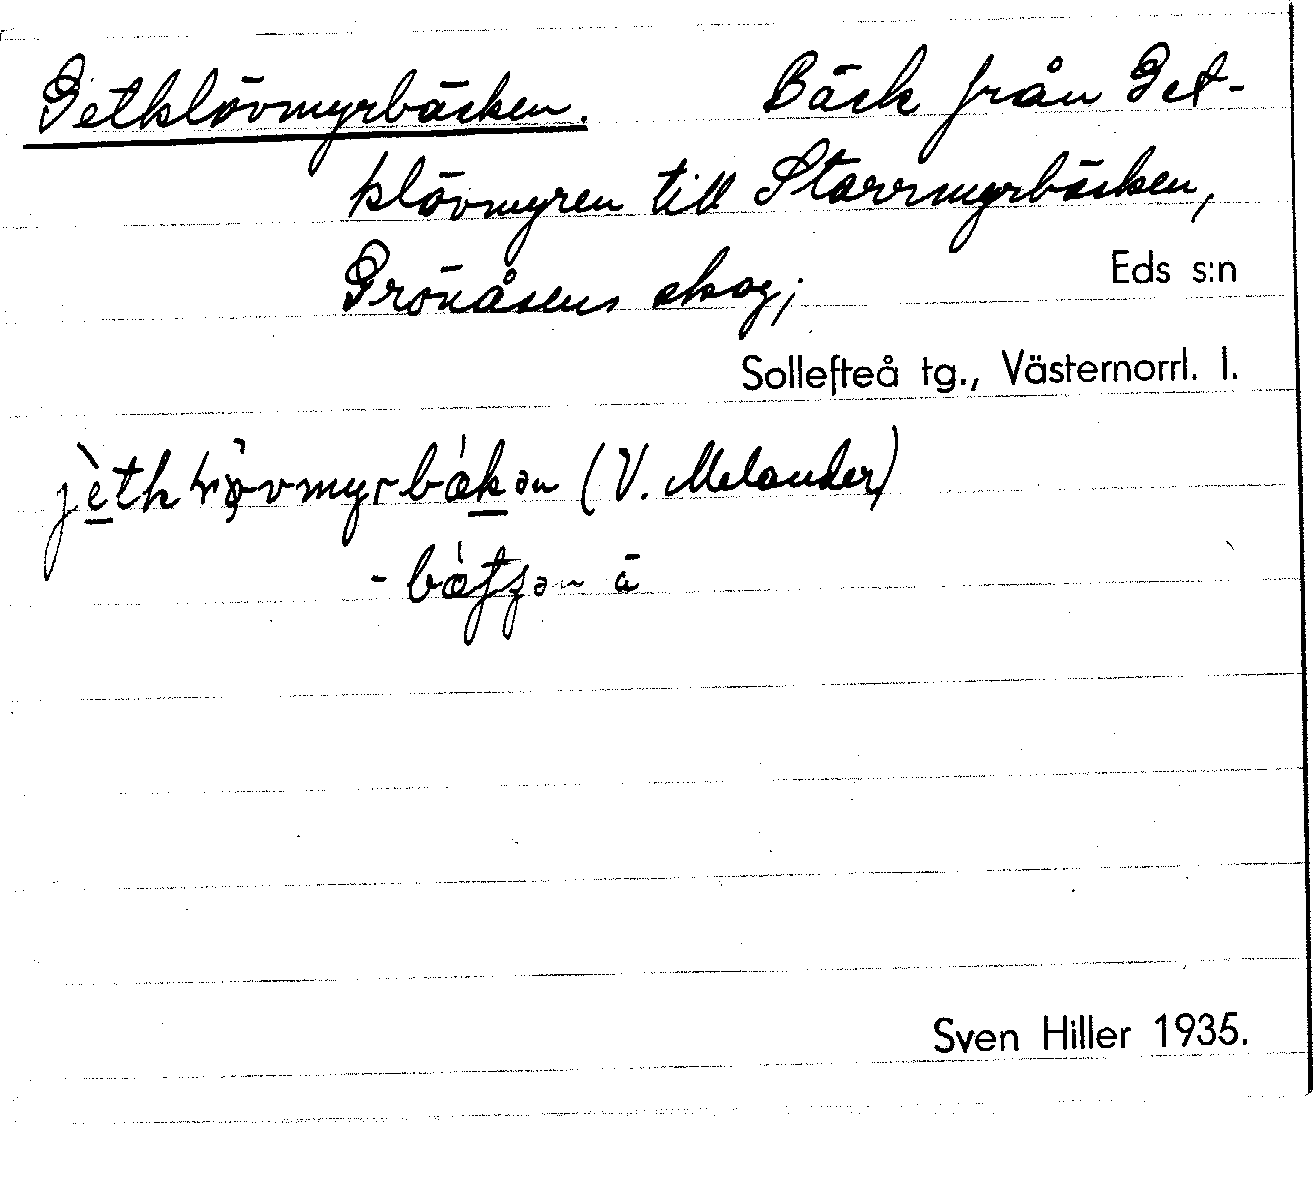 Getklövmyrbäcken. Bäck från Get-
klövmyren till Starrmyrbäcken,
Grönåsens skog; Eds s:n
Sollefteå tg., Västernorrl. l.
(V. Melander)
Sven Hiller 1935.